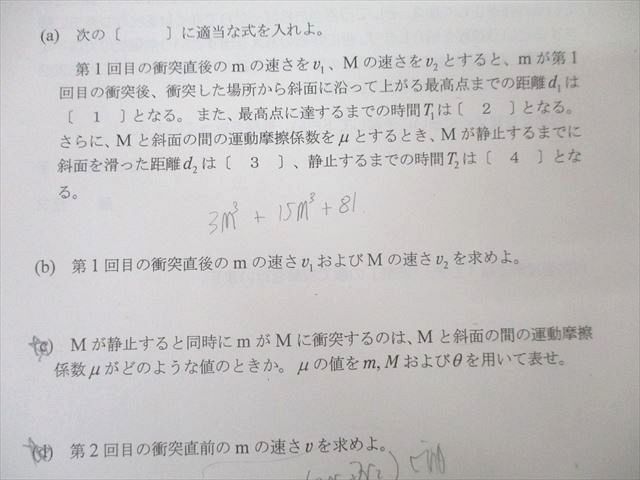 (a) 次の〔　　　〕に適当な式を入れよ。
第1回目の衝突直後のmの速さをv₁、Mの速さをv₂とすると、mが第1
回目の衝突後、衝突した場所から斜面に沿って上がる最高点までの距離d₁は
〔　1　〕となる。また、最高点に達するまでの時間T₁は〔　2　〕となる。
さらに、Mと斜面の間の運動摩擦係数をμとするとき、Mが静止するまでに
斜面を滑った距離d₂は〔　3　〕、静止するまでの時間T₂は〔　4　〕とな
る。
3M³ + 15M³ + 81
(b) 第1回目の衝突直後のmの速さv₁およびMの速さv₂を求めよ。
(c) Mが静止すると同時にmがMに衝突するのは、Mと斜面の間の運動摩擦
係数μがどのような値のときか。μの値をm, Mおよびθを用いて表せ。
(d) 第2回目の衝突直前のmの速さvを求めよ。